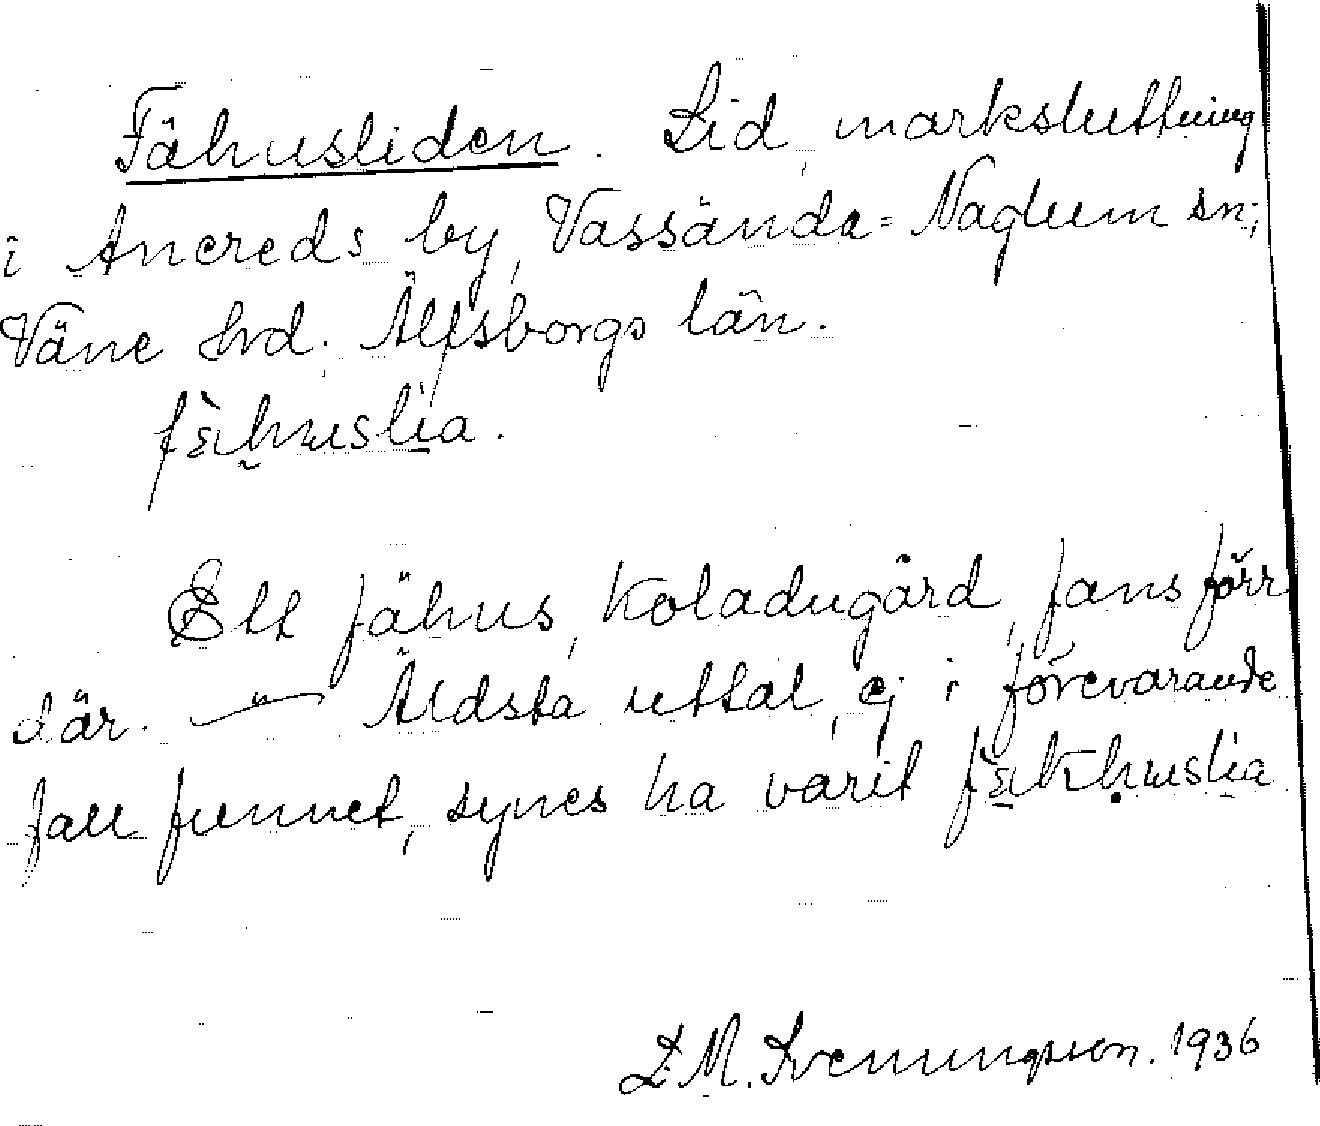 Fähusliden. Lid, marksluttning
i Ancreds by, Vassända=Naglum sn;
Väne hrd. Älfsborgs län.
Ett fähus, koladugård, fans förr
där. — Äldsta uttal, ej i förevarande
fall funnet, synes ha varit
L. M. Svenungsson. 1936